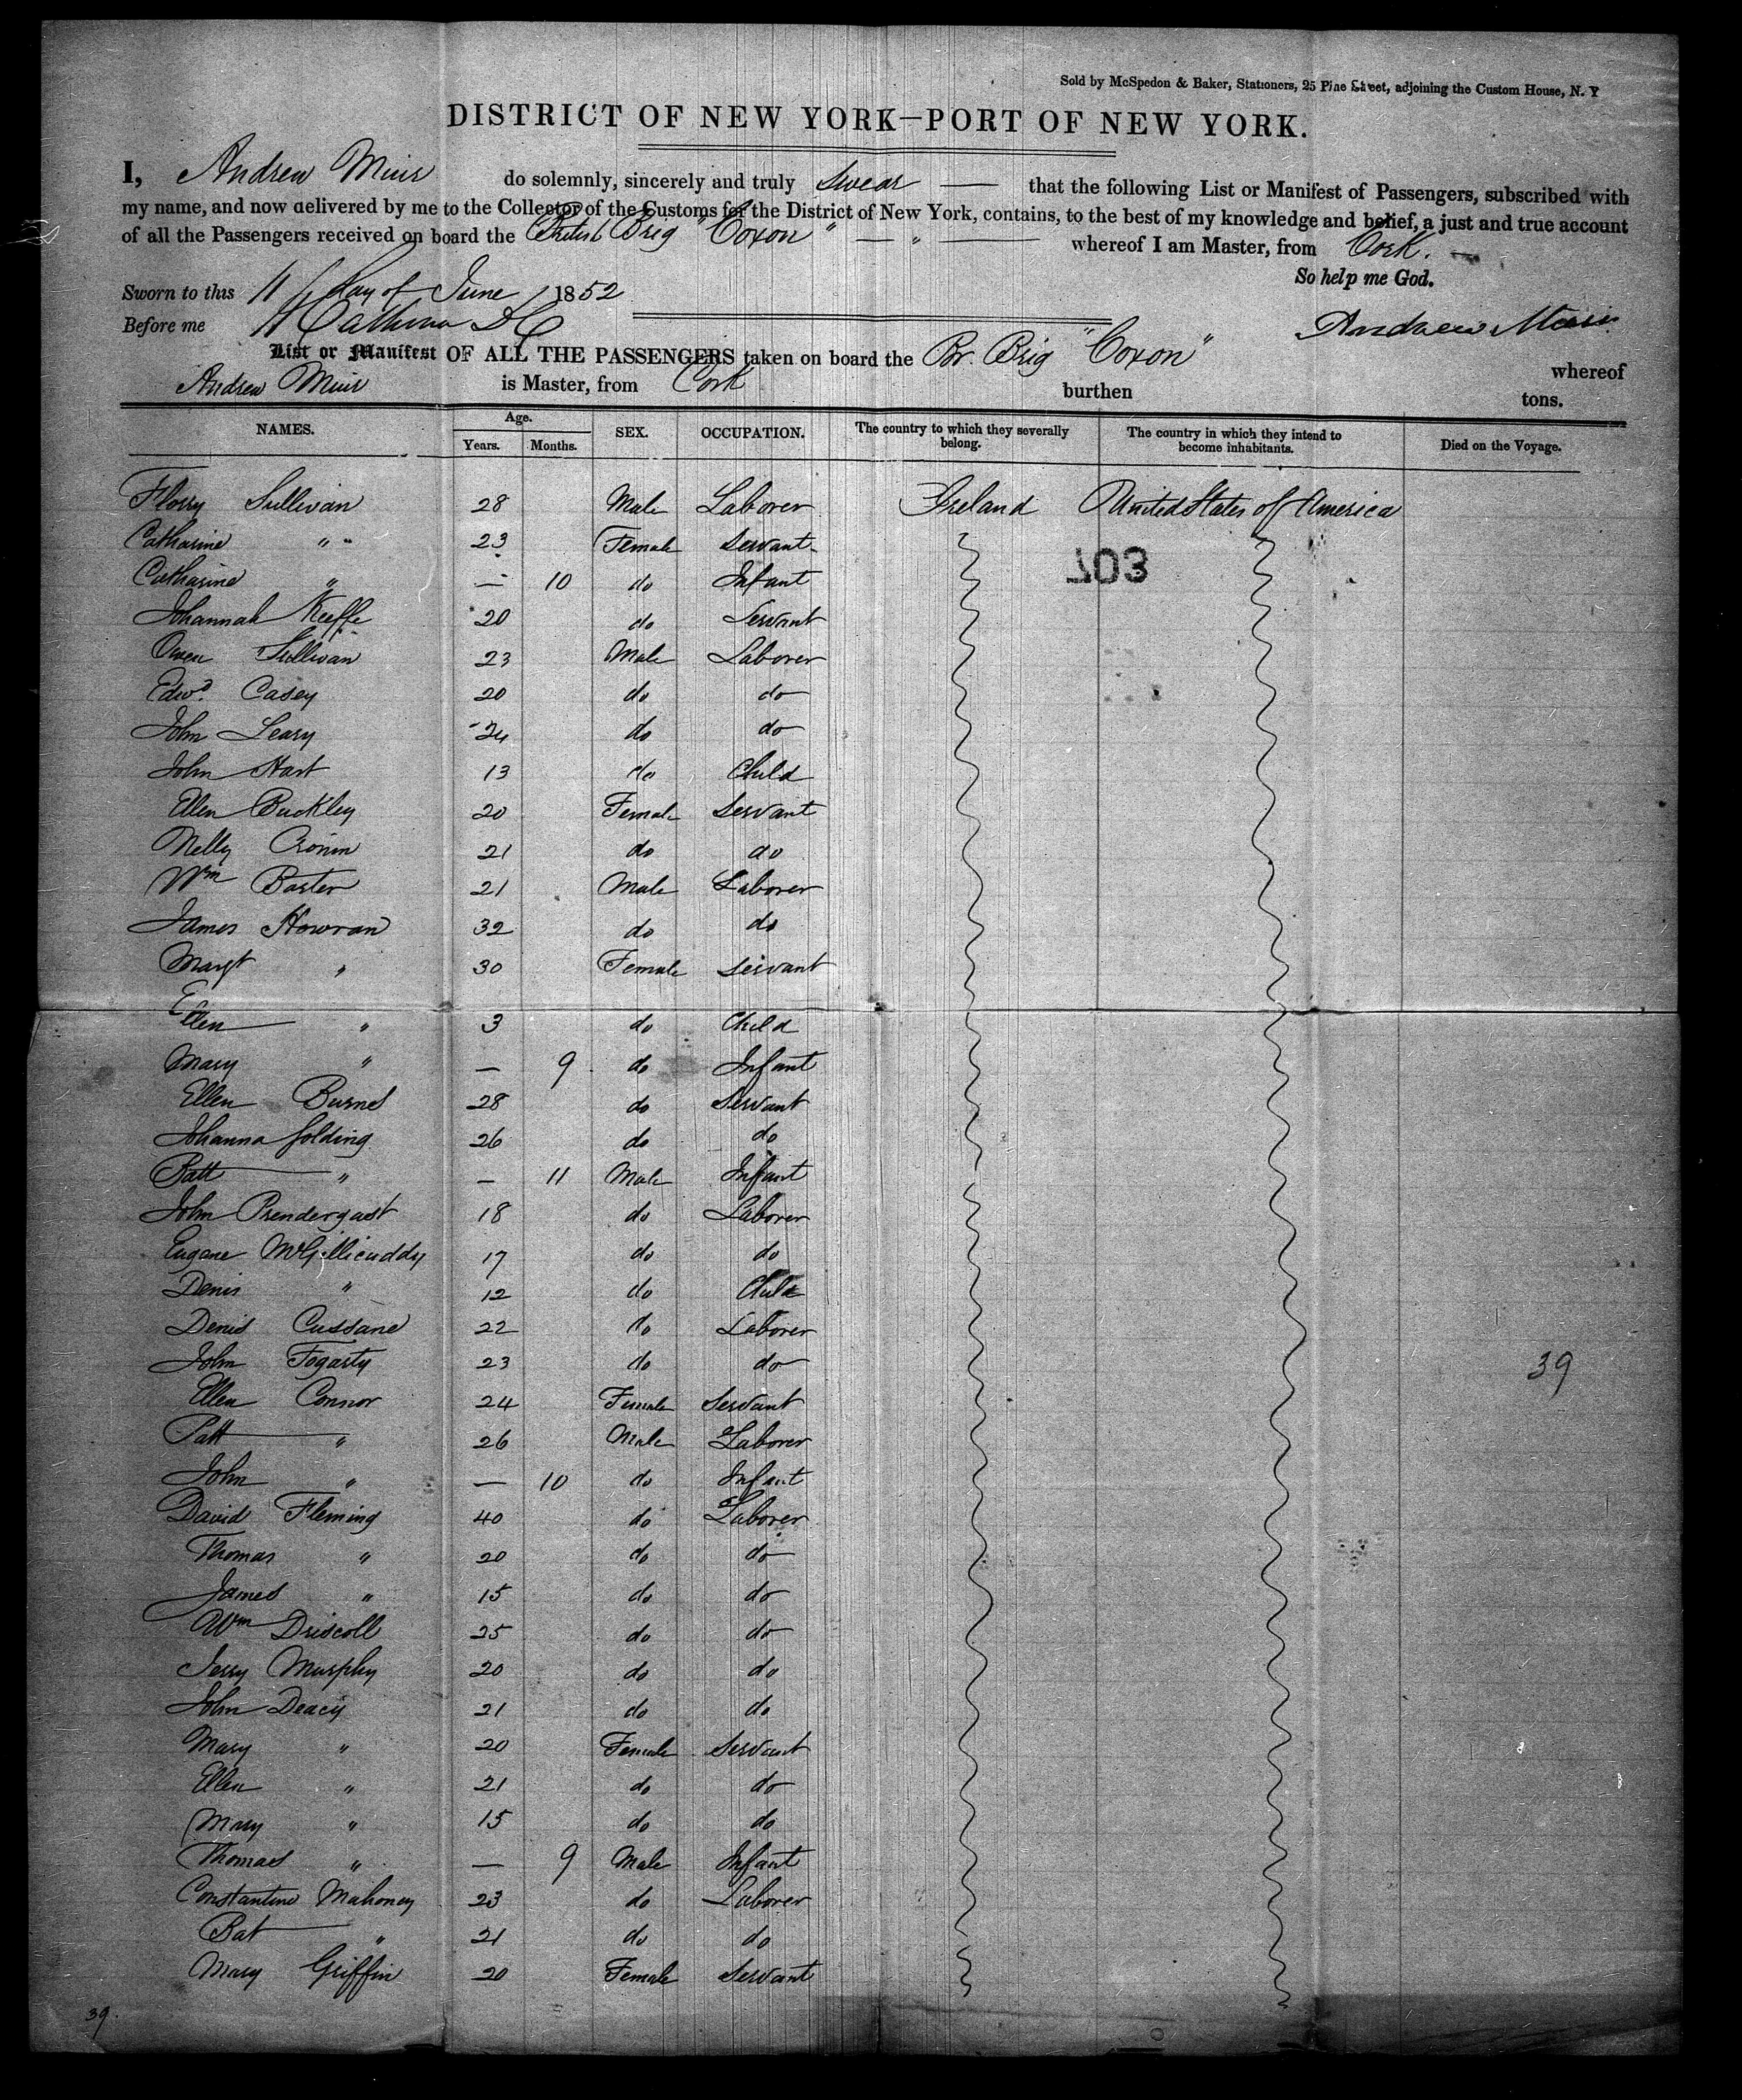 Sold by McSpedon & Baker, Stationers, 25 Pine Street, adjoining the Custom House, N. Y
DISTRICT OF NEW YORK—PORT OF NEW YORK.
I, Andrew Muir do solemnly, sincerely and truly Swear — that the following List or Manifest of Passengers, subscribed with
my name, and now delivered by me to the Collector of the Customs for the District of New York, contains, to the best of my knowledge and belief, a just and true account
of all the Passengers received on board the British Brig "Coxon" — " — whereof I am Master, from Cork. —
So help me God.
Sworn to this 11 day of June 1852
Before me
Andrew Muir
List or Manifest OF ALL THE PASSENGERS taken on board the Br. Brig "Coxon" whereof
Andrew Muir is Master, from Cork burthen tons.
NAMES. Age. Years. Months. SEX. OCCUPATION. The country to which they severally belong. The country in which they intend to become inhabitants. Died on the Voyage.
Florry Sullivan 28 Male Laborer Ireland United States of America
Catharine " 23 Female Servant
703
Catharine " — 10 do Infant
Johannah Keeffe 20 do Servant
Owen Sullivan 23 Male Laborer
Edwd. Casey 20 do do
John Leary 24 do do
John Hart 13 do Child
Ellen Buckley 20 Female Servant
Nelly Cronin 21 do do
Wm Baster 21 Male Laborer
James Howran 32 do do
Margt " 30 Female Servant
Ellen " 3 do Child
Mary " — 9 do Infant
Ellen Burns 28 do Servant
Johanna Golding 26 do do
Batt " — 11 Male Infant
John Prendergast 18 do Laborer
Eugane McGillicuddy 17 do do
Denis " 12 do Child
Denis Cussane 22 do Laborer
John Fogarty 23 do do
39
Ellen Connor 24 Female Servant
Patt " 26 Male Laborer
John " — 10 do Infant
David Fleming 40 do Laborer
Thomas " 20 do do
James " 15 do do
Wm Driscoll 25 do do
Jerry Murphy 20 do do
John Deacy 21 do do
Mary " 20 Female Servant
Ellen " 21 do do
Mary " 15 do do
Thomas " — 9 Male Infant
Constantine Mahoney 23 do Laborer
Bat " 21 do do
Mary Griffin 20 Female Servant
39.